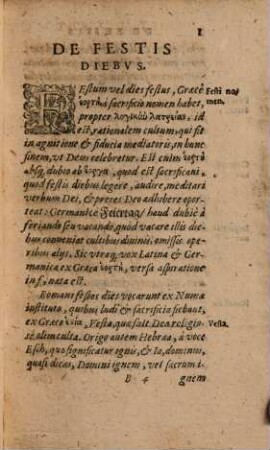 1
DE FESTIS
DIEBVS.
FEstum vel dies festus, Græcè
Festi no-
men.
ἑορτὴ à sacrificio nomen habet,
propter λογικὴν λατρείαν, id
est, rationalem cultum, qui fit
in agnitione & fiducia mediatoris, in hunc
finem, vt Deus celebretur. Est enim ἑορτὴ
absq́; dubio ab quod est sacrificari,
quod festis diebus legere, audire, meditari
verbum Dei, & preces Deo adhibere opor-
teat: Germanicè Feiertag / haud dubiè à
feriando seu vacando, quod vacare illis die-
bus conueniat cultibus diuinis, omissis ope-
ribus alijs. Sic vtraq; vox Latina & Ger-
manica ex Græca ἑορτὴ, versa aspiratione
in f, nata est.
Romani festos dies vocarunt ex Numæ
instituto, quibus ludi & sacrificia fiebant,
ex Græco ἑστία, Vesta, quasi alt Dea religio-
Vesta.
sè alim culta. Origo autem Hebræa, à voce
Esch, quo significatur ignis, & Ia, dominus,
quasi dicas, Domini ignem, vel sacrum i-
B 4
gnem